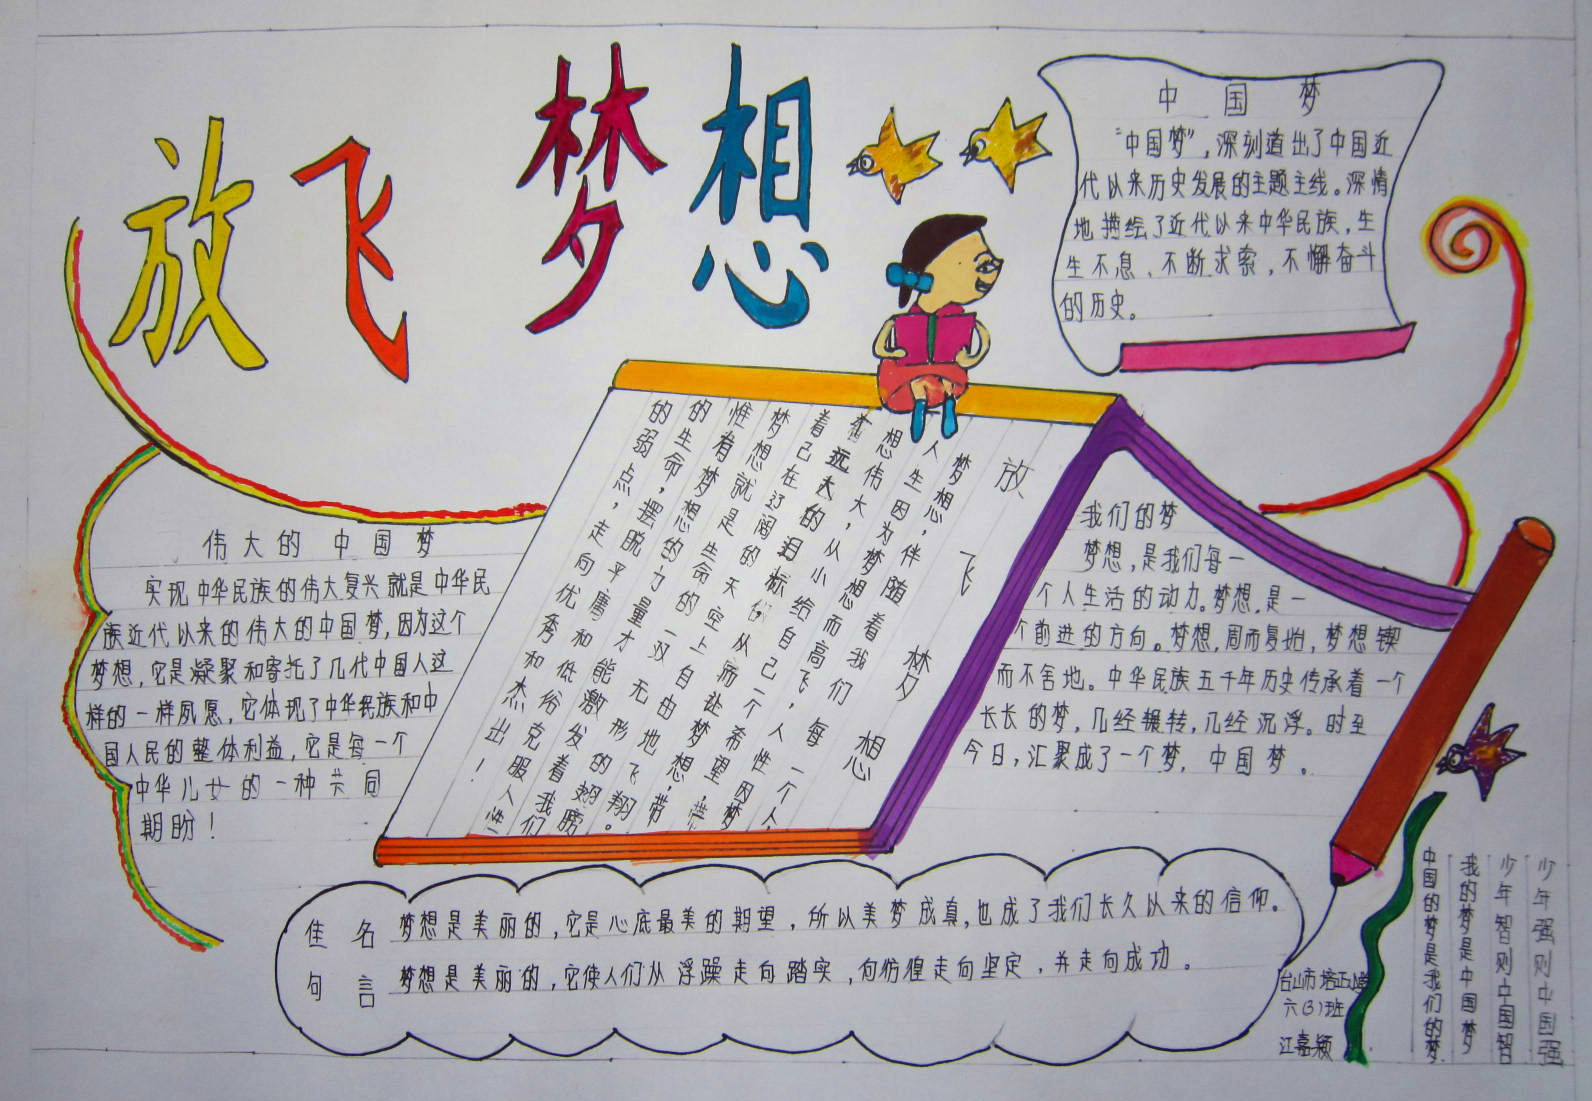 放飞 梦想
中国梦
“中国梦”,深刻道出了中国近
代以来历史发展的主题主线。深情
地描绘了近代以来中华民族,生
生不息、不断求索,不懈奋斗
的历史。
伟大的中国梦
实现中华民族的伟大复兴就是中华民
族近代以来的伟大的中国梦,因为这个
梦想,它是凝聚和寄托了几代中国人这
样的一样夙愿,它体现了中华民族和中
国人民的整体利益,它是每一个
中华儿女的一种共同
期盼!
放飞梦想
梦想,伴随着我们每一个人
人生因为梦想而高飞,人性因梦
想伟大,从小给自己一个希望,带
着远大的目标,从而让梦想,带
着己在辽阔的天空上自由地飞翔。
梦想就是生命的一双无形的翅膀
惟有梦想的力量才能激发着我们
的生命,摆脱平庸和低俗克服人性
的弱点,走向优秀和杰出!
我们的梦
梦想,是我们每一
个人生活的动力。梦想,是一
个前进的方向。梦想,周而复始,梦想锲
而不舍地。中华民族五千年历史传承着一个
长长的梦,几经辗转,几经沉浮。时至
今日,汇聚成了一个梦,中国梦。
佳句
名言
梦想是美丽的,它是心底最美的期望,所以美梦成真,也成了我们长久以来的信仰。
梦想是美丽的,它使人们从浮躁走向踏实,向彷徨走向坚定,并走向成功。
台山市培正小学
六(3)班
江嘉颖
少年强则中国强
少年智则中国智
我的梦是中国梦
中国的梦是我们的梦